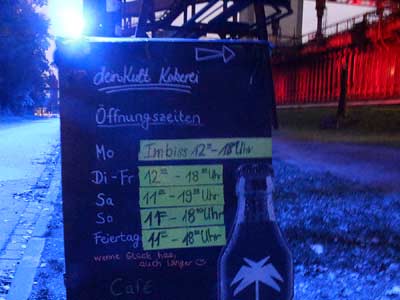 dein Kult Kokerei
Öffnungszeiten
Mo Imbiss 12⁰⁰ - 18⁰⁰ Uhr
Di - Fr 12⁰⁰ - 18⁰⁰ Uhr
Sa 11⁰⁰ - 19⁰⁰ Uhr
So 11 - 18⁰⁰ Uhr
Feiertag 11⁰⁰ - 18⁰⁰ Uhr
wenne Glück has,
auch länger
Café